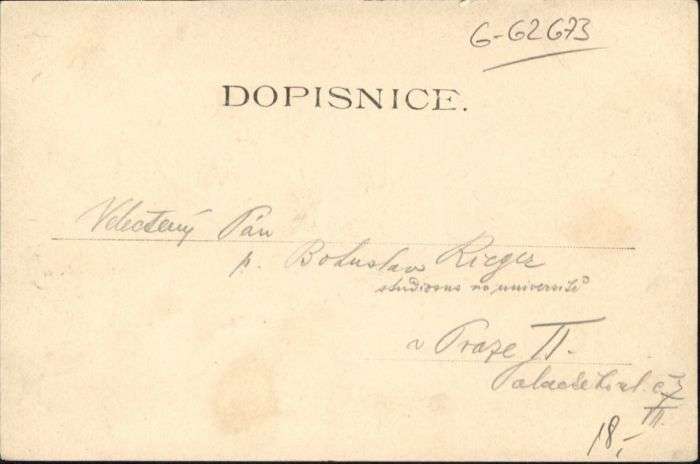 G-62673
DOPISNICE.
Velectěný Pán
p. Bohuslav Rieger
studiosus na universitě
v Praze II.
Palackého ul. č 3
III.
18,-